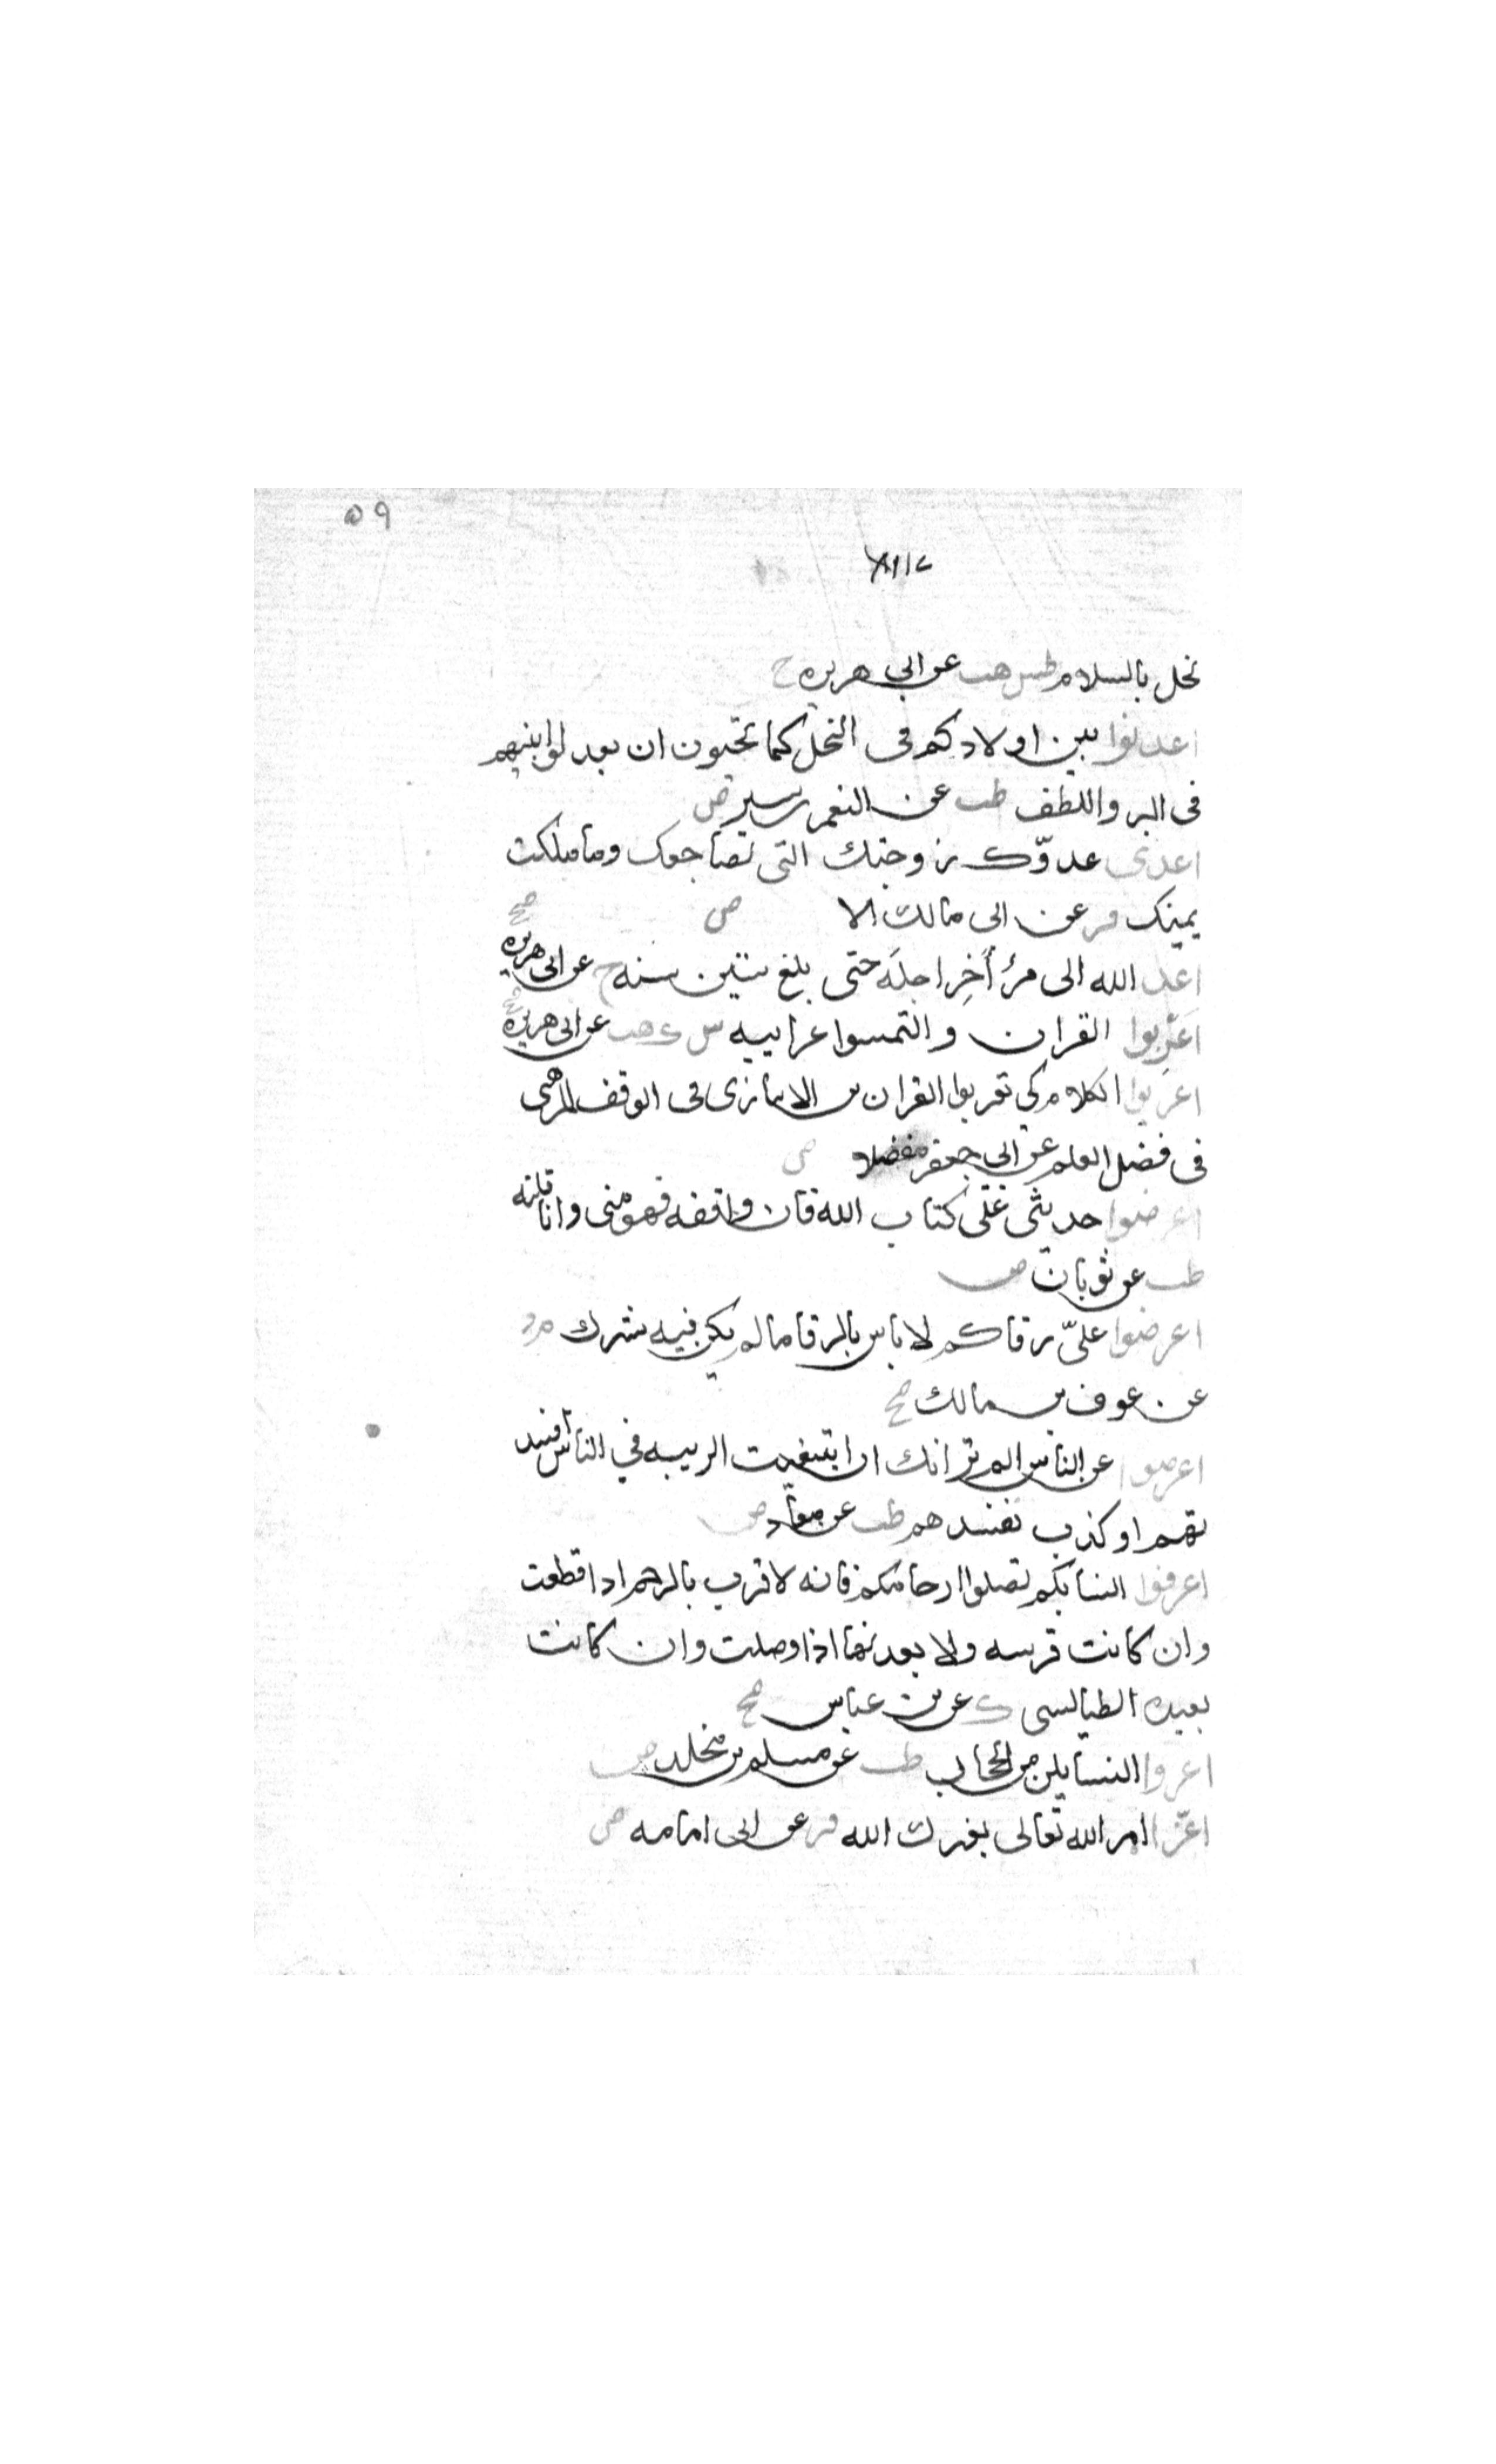 ٥٩
نخل بالسلام طس هب عن ابي هريره ح
اعدلوا بين اولادكم فى النحل كما تحبون ان يعدلوا بينهم
فى البر واللطف طب عن النعمن بشير ض
اعدى عدوّك زوجتك التى تضاجعك وما ملكت
يمينك فر عن ابى مالك الا ض صح
اعذر الله الى امرأ أَخِر اجلَه حتى بلغ ستين سنه ح عن ابى هريره
اَعْرِبوا القران والتمسوا غرايبه ش ك هب عن ابى هريره صح
اعربوا الكلام كي تعربوا القران بن الانبارى فى الوقف المرهبى
فى فضل العلم عن ابي جعفر مفضلا ض
اعرضوا حديثى على كتاب الله فان وافقه فهو منى وانا قلته
طب عن ثوبان ض
اعرضوا علىّ رقاكم لا باس بالرقا ما لم يكن فيه شرك م د
عن عوف بن مالك صح
اعرضوا عن الناس الم تر انك ان ابتغيت الريبه في الناس افسد
تهم او كذب تفسدهم طب عن معاذ ض
اعرفوا انسابكم تصلوا ارحامكم فانه لا قرب بالرحم اذا قطعت
وان كانت قريبه ولا بعد بها اذا وصلت وان كانت
بعيده الطيالسى ك عن بن عباس صح
اعروا النسا يلزمن الحجاب طب عن مسلم بن مخلد ض
اعزّ امر الله تعالى يعزك الله فر عن ابى امامه ض